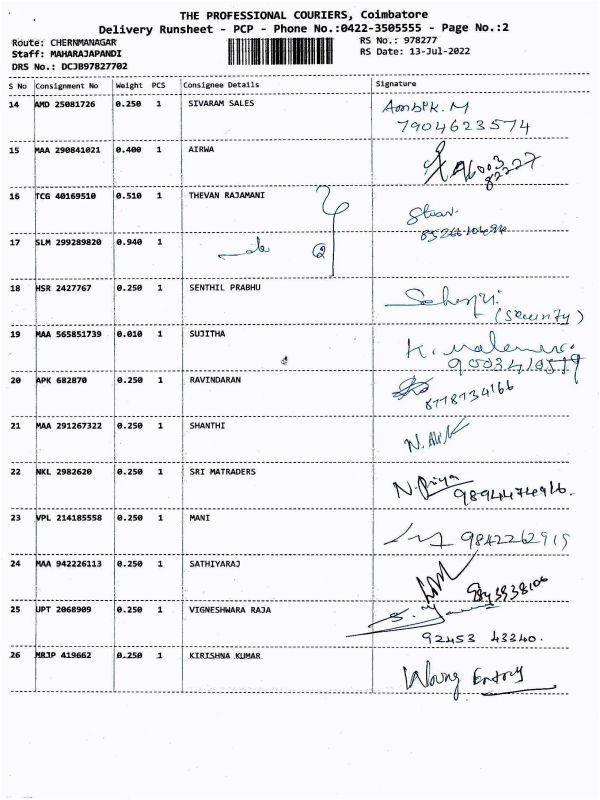 THE PROFESSIONAL COURIERS, Coimbatore
Delivery Runsheet - PCP - Phone No.:0422-3505555 - Page No.:2
Route: CHERNMANAGAR RS No.: 978277
Staff: MAHARAJAPANDI RS Date: 13-Jul-2022
DRS No.: DCJB97827702
S No Consignment No Weight PCS Consignee Details Signature
14 AMD 25081726 0.250 1 SIVARAM SALES
7904623574
15 MAA 290841021 0.400 1 AIRWA
96003
82227
16 TCG 40169510 0.510 1 THEVAN RAJAMANI
17 SLM 299289820 0.940 1
18 HSR 2427767 0.250 1 SENTHIL PRABHU
(Security)
19 MAA 565851739 0.010 1 SUJITHA
20 APK 682870 0.250 1 RAVINDARAN
8778734166
21 MAA 291267322 0.250 1 SHANTHI
22 NKL 2982620 0.250 1 SRI MATRADERS
N. Priya 9894474916.
23 VPL 214185558 0.250 1 MANI
9842262919
24 MAA 942226113 0.250 1 SATHIYARAJ
25 UPT 2068909 0.250 1 VIGNESHWARA RAJA
92453 43340.
26 MRJP 419662 0.250 1 KIRISHNA KUMAR
Wrong Entory